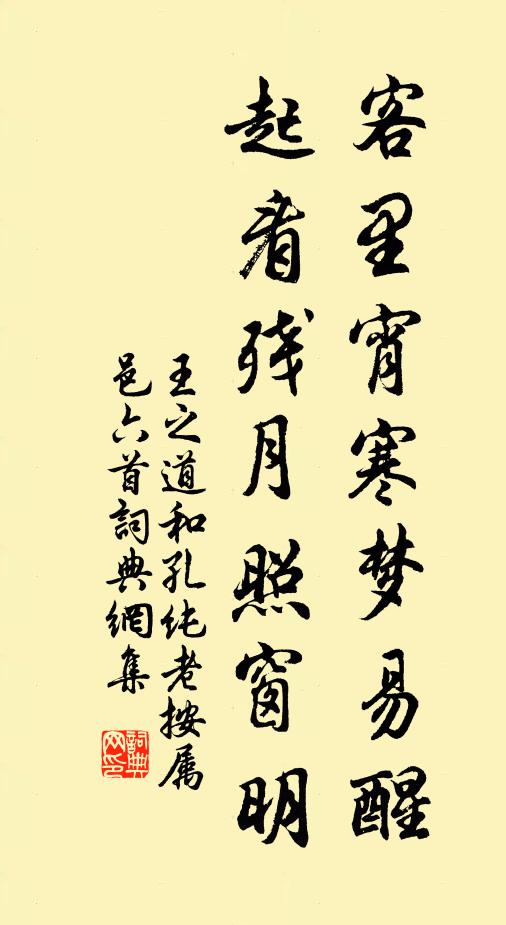 客里宵寒梦易醒
起看残月照窗明
王之道和孔纯老按属
邑六首詞典網集
詞典网印